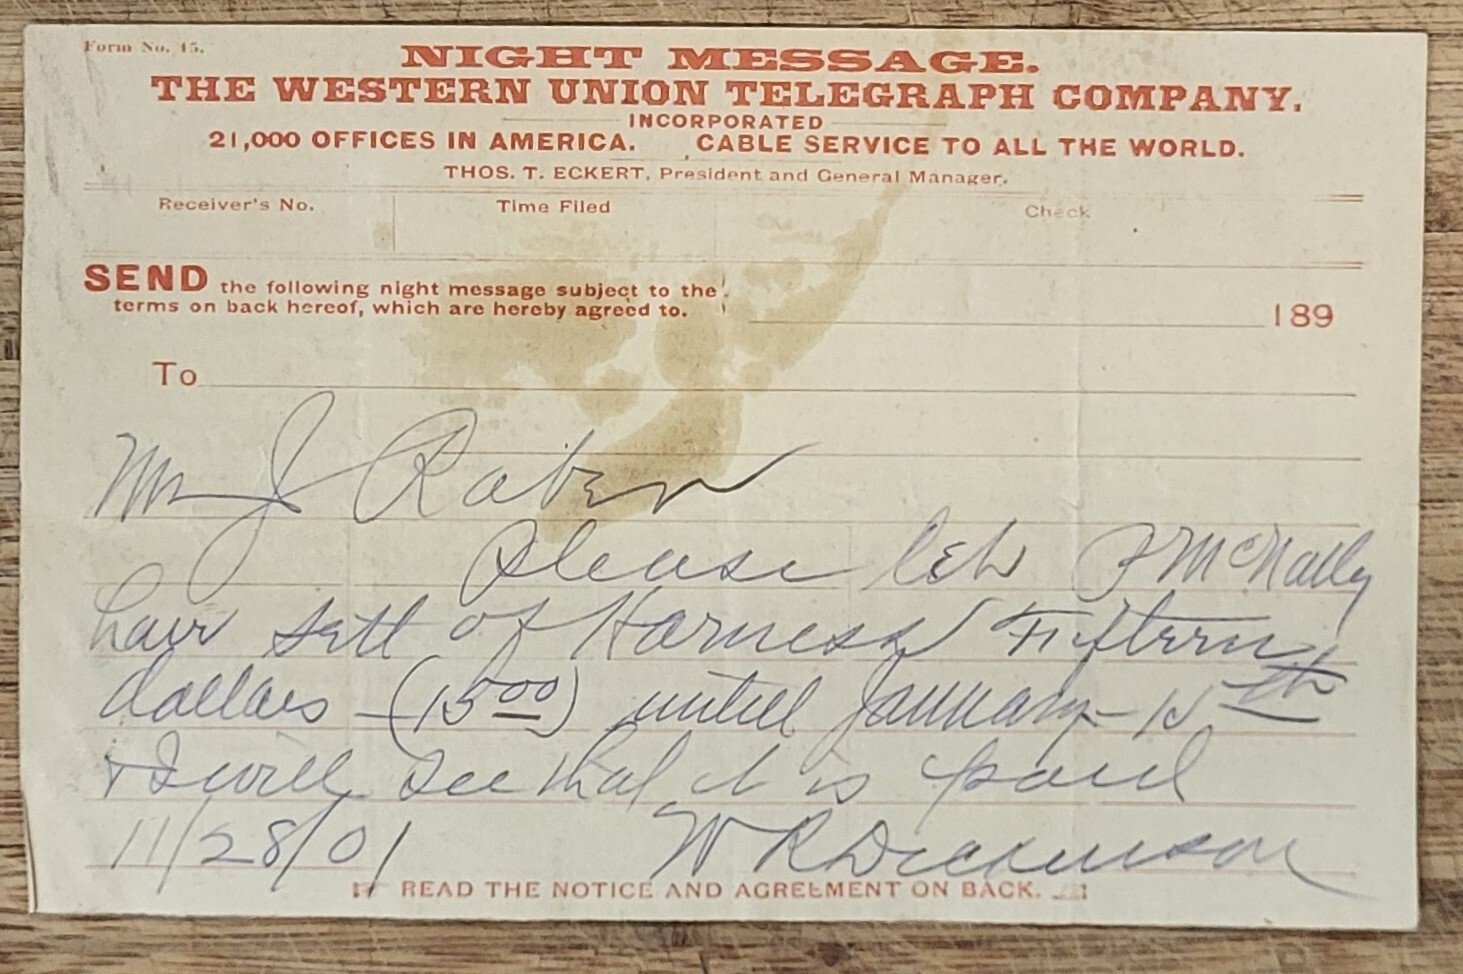 Form No. 45.
NIGHT MESSAGE.
THE WESTERN UNION TELEGRAPH COMPANY.
INCORPORATED
21,000 OFFICES IN AMERICA. CABLE SERVICE TO ALL THE WORLD.
THOS. T. ECKERT, President and General Manager.
Receiver's No. Time Filed Check
SEND the following night message subject to the
terms on back hereof, which are hereby agreed to.
189
To
Mr J Raben
Please let P McNally
have sett of Harness Fifteen
dollars – (15 00) untill January – 15th
& I will see that it is paid
11/28/01 W R Dickinson
READ THE NOTICE AND AGREEMENT ON BACK.